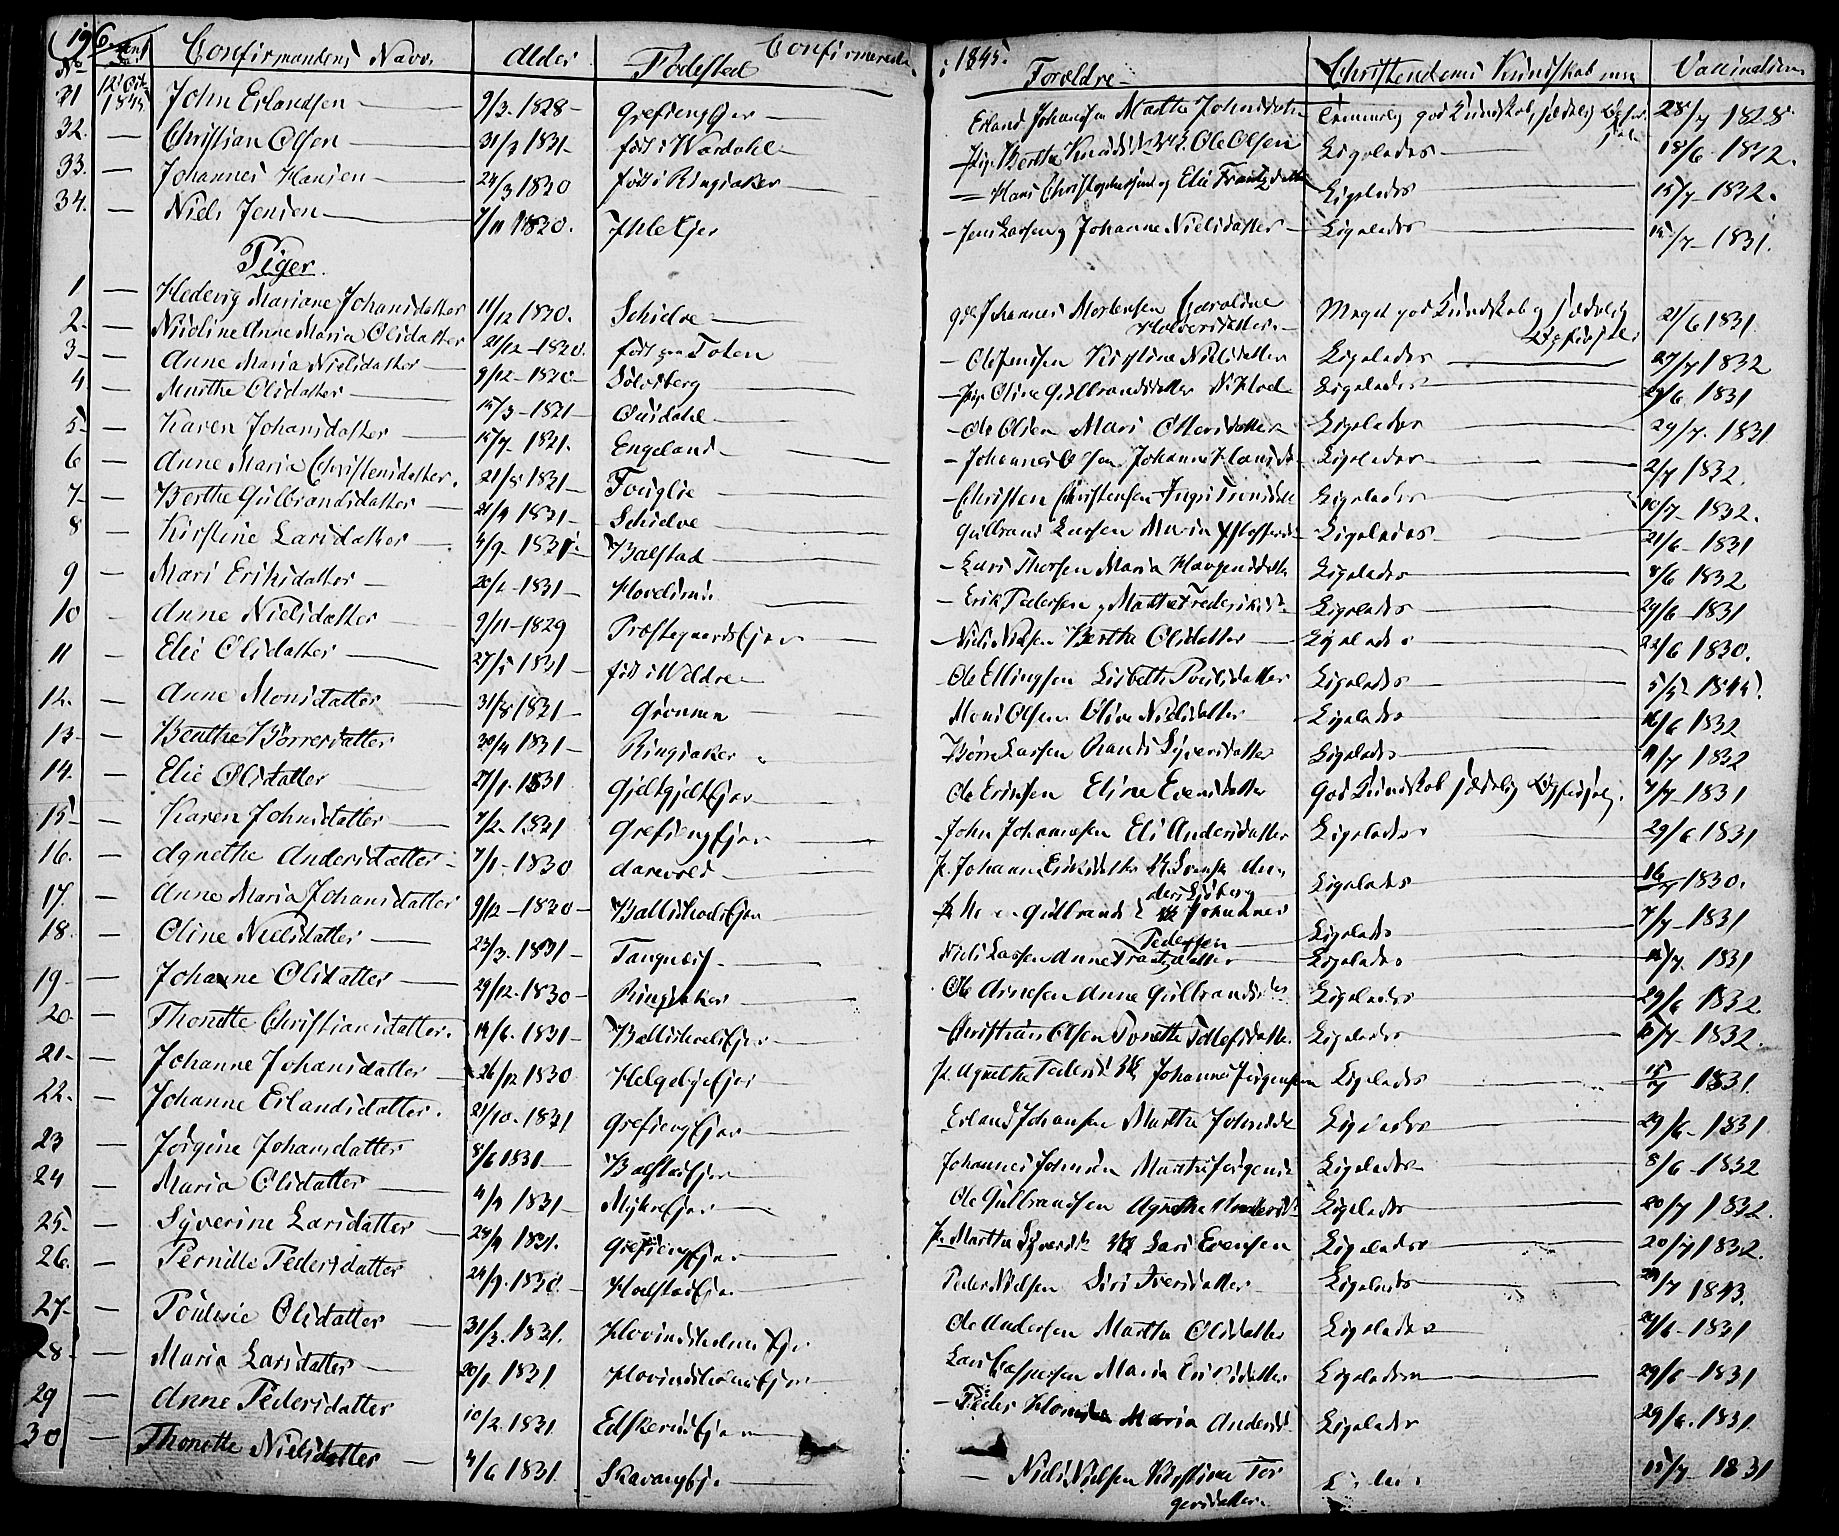 196.
Confirmerede 1845.
No Confirmandens Navn Alder Fødested Forældre Christendoms Kundskab Vaccination
31 12 Oct 1845 John Erlandsen 9/3 1828 Grefsengejer Erland Johansen Marthe Johnsdatter Temmelig god Kundskab, sædelig 28/7 1828
32. — Christian Olsen 31/3 1831 født i Wardahl Pige Berthe Ole Olsen Ligeledes 18/6 1832.
33. — Johannes Hansen 24/3 1830 født i Ringsaker Hans Christophersen og Elie Frantzdatter Ligeledes 15/7 1832.
34. — Niels Jensen 7/11 1830. Ihleejer Jens Larsen og Johanne Nielsdatter Ligeledes 15/7 1831.
Piger.
1 — Hedevig Mariane Johansdatter 11/12 1830. Schielve Johannes Mortensen Halvorsdatter Meget god Kundskab og sædelig 21/6 1831
2. — Nicoline Anne Maria Olsdatter 21/12 1830. født paa Toten Ole Jensen Kirstine Nielsdatter Ligeledes 27/7 1832
3 — Anne Maria Nielsdatter 9/12 1830 Sölvsberg Pige Oline Gulbrandsdatter Ligeledes 29/6 1831
4. — Marthe Olsdatter 15/3 1831 Ousdahl Ole Olsen Mari Ottersdatter Ligeledes 29/7. 1831
5 — Karen Johansdatter 15/7 1831. Engeland Johannes Olsen Johanne Hansdtr Ligeledes 2/7 1832.
6 — Anne Maria Christensdatter. 21/5 1831 Fouglie Christen Christensen Ligeledes 10/7 1832.
7 — Berthe Gulbrandsdatter 21/9 1831 Schielve Gulbrand Larsen Maria Ligeledes 21/6 1831
8 — Kirstine Larsdatter 4/9 1831 Balstad Lars Thorsen Maria Haagensdatter Ligeledes 8/6 1832
9 — Mari Eriksdatter 1831 Erik Pedersen og Marthe Frederiksdtr Ligeledes 29/6 1831
10 — Anne Nielsdatter 9/11 1829 Præstegaardsejer Niels Nilsen Berthe Olsdatter Ligeledes 22/6 1830.
11 — Elie Olsdatter 27/5 1831 født i Veldre Ole Ellingsen Lisbeth Povelsdatter Ligeledes 5/5 1845.
12. — Anne Monsdatter 31/8 1831 Grönnen Mons Olsen Oline Nielsdatter Ligeledes 16/6 1832
13 — Benthe Börresdatter 30/4 1831 Ringsaker Börre Larsen Randi Syversdatter Ligeledes 11/7 1832
14. — Elie Olsdatter 27/1 1831 Ole Eriksen Eline Evensdatter God Kundskab sædelig 7/7 1831
15 — Karen Johnsdatter 7/2 1831 Grefsengejer John Johannesen Eli Andersdatter Ligeledes 29/6 1831
16. — Agnethe Andersdatter 7/1 1830 Aarevold P. Johanne Eriksdatter Anders Sjöberg Ligeledes 16/7 1830.
17. — Anne Maria Johansdatter 9/12 1830 Ballishoelejer Gulbrands Johannes Pedersen Ligeledes 7/7 1831
18. — Oline Nielsdatter 23/3. 1831 Tangnæs Niels Larsen Anne Frantzdatter Ligeledes 15/7 1831
19 — Johanne Olsdatter 29/12. 1830 Ringsaker Ole Arnesen Anne Gulbrandsdtr Ligeledes 29/6 1832.
20. — Thonette Christiansdatter. 14/6. 1831 Ballishoelejer Christian Olsen Tonette Tollefsdatter Ligeledes 10/7 1832.
21 — Johanne Johansdatter 26/12 1830 Helgebyejer P. Agnethe Pedersd Johannes Jörgensen Ligeledes 15/7 1831.
22. — Johanne Erlandsdatter. 21/10. 1831 Grefsengejer Erland Johansen Marthe Johnsdtr Ligeledes 29/6 1831.
23 — Jörgine Johansdatter 8/6 1831 Balstadejer Johannes Johnsen Marthe Jörgensd Ligeledes 8/6 1832
24 — Maria Olsdatter 4/9 1831 Myhreejer Ole Gulbrandsen Agnethe Andersd Ligeledes 20/7 1832.
25. — Syverine Larsdatter 24/9 1831. Grefsengejer P. Marthe Syversdtr Lars Evensen Ligeledes 20/7 1832.
26. — Pernille Pedersdatter 24/9. 1830 Hoelstadejer Peder Nielsen Siri Iversdatter Ligeledes 24/7 1843.
27. — Poulsie Olsdatter 31/3. 1831. Hovindsholmsejer Ole Andersen Marthe Olsdatter Ligeledes 29/6 1831
28 — Maria Larsdatter 20/1 1831 Hovindsholmsejer Lars Caspersen Maria Eriksdatter Ligeledes 29/6 1831
29 — Anne Pedersdatter 10/2. 1831 Peder Maria Andersd Ligeledes 29/6. 1831.
30 — Thonette Nielsdatter 4/6 1831. Skavangejer Niels Nielsen Kirstine Torgersdatter 15/7 1831